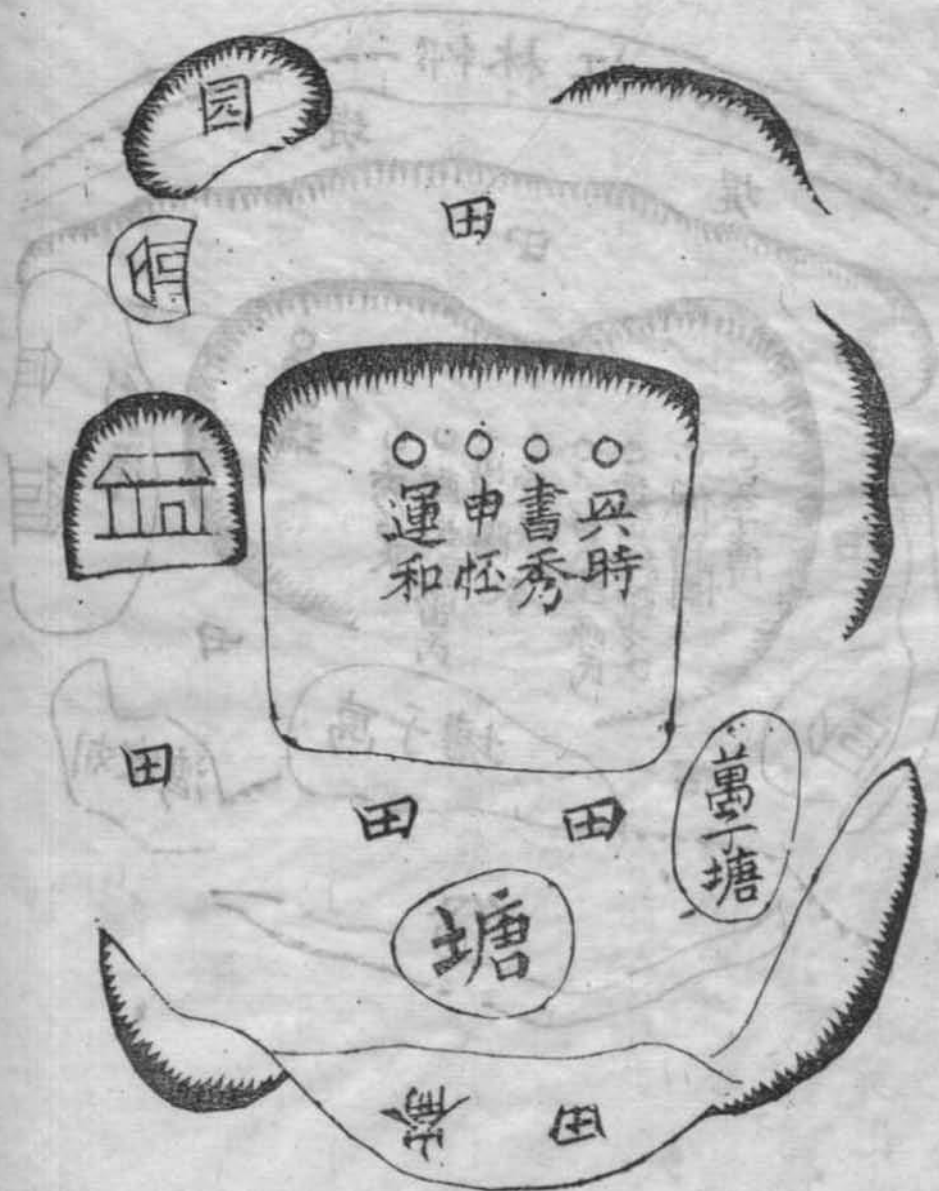 园
田
兴時
書秀
申恠
運和
田
田
田
萬丁塘
塘
田